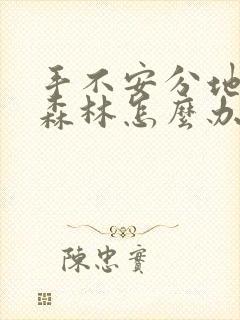 手不安分地
森林怎麼办
陳忠實